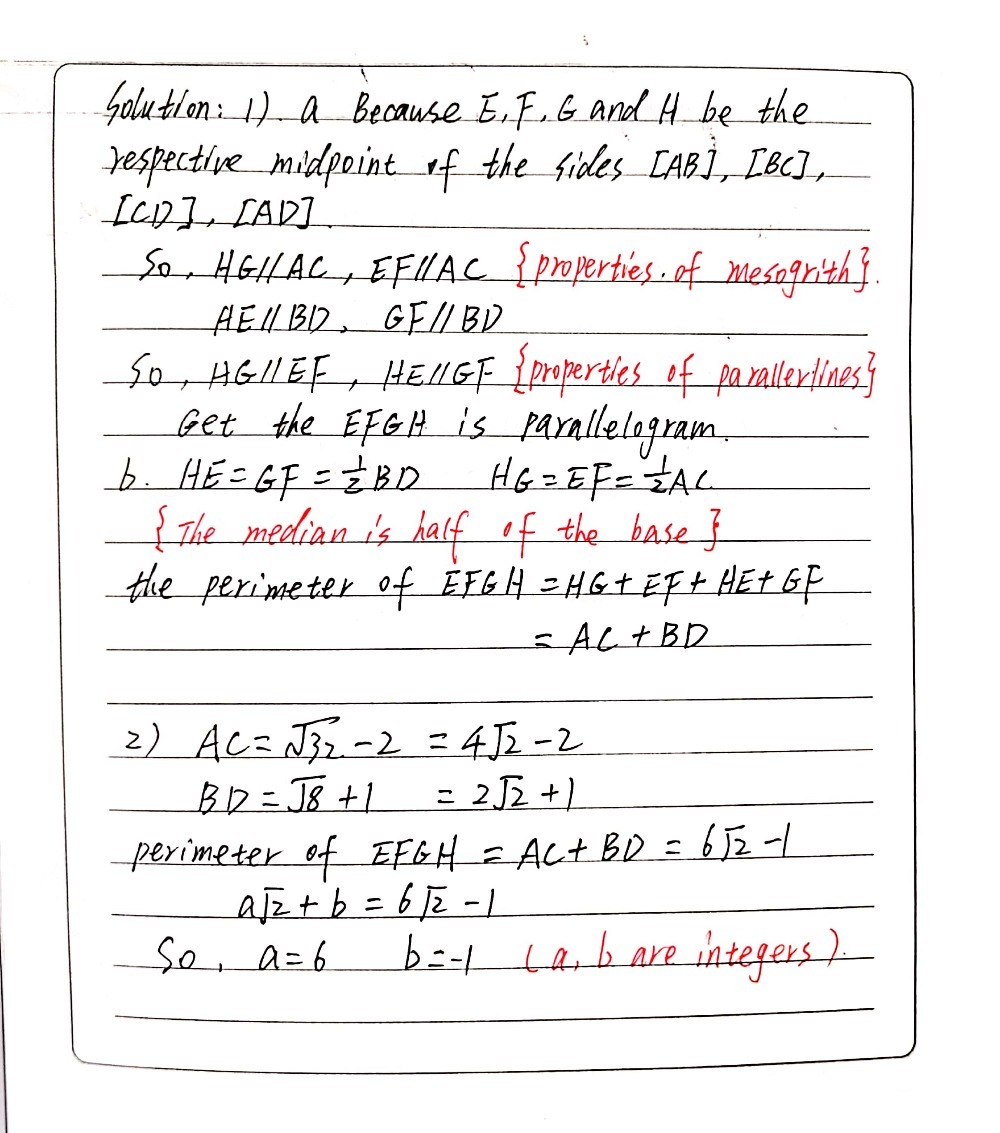 Solution: 1). a Because E, F, G and H be the
respective midpoint of the sides [AB], [BC],
[CD], [AD].
So, HG//AC, EF//AC {properties of mesogrith}.
HE//BD, GF//BD
So, HG//EF, HE//GF {properties of parallerlines}
Get the EFGH is parallelogram.
b. HE=GF=½BD HG=EF=½AC
{The median is half of the base}
the perimeter of EFGH =HG+EF+HE+GF
= AC+BD
2) AC=√32-2 =4√2-2
BD=√8+1 =2√2+1
perimeter of EFGH = AC+BD = 6√2-1
a√2+b=6√2-1
So, a=6 b=-1 (a, b are integers).